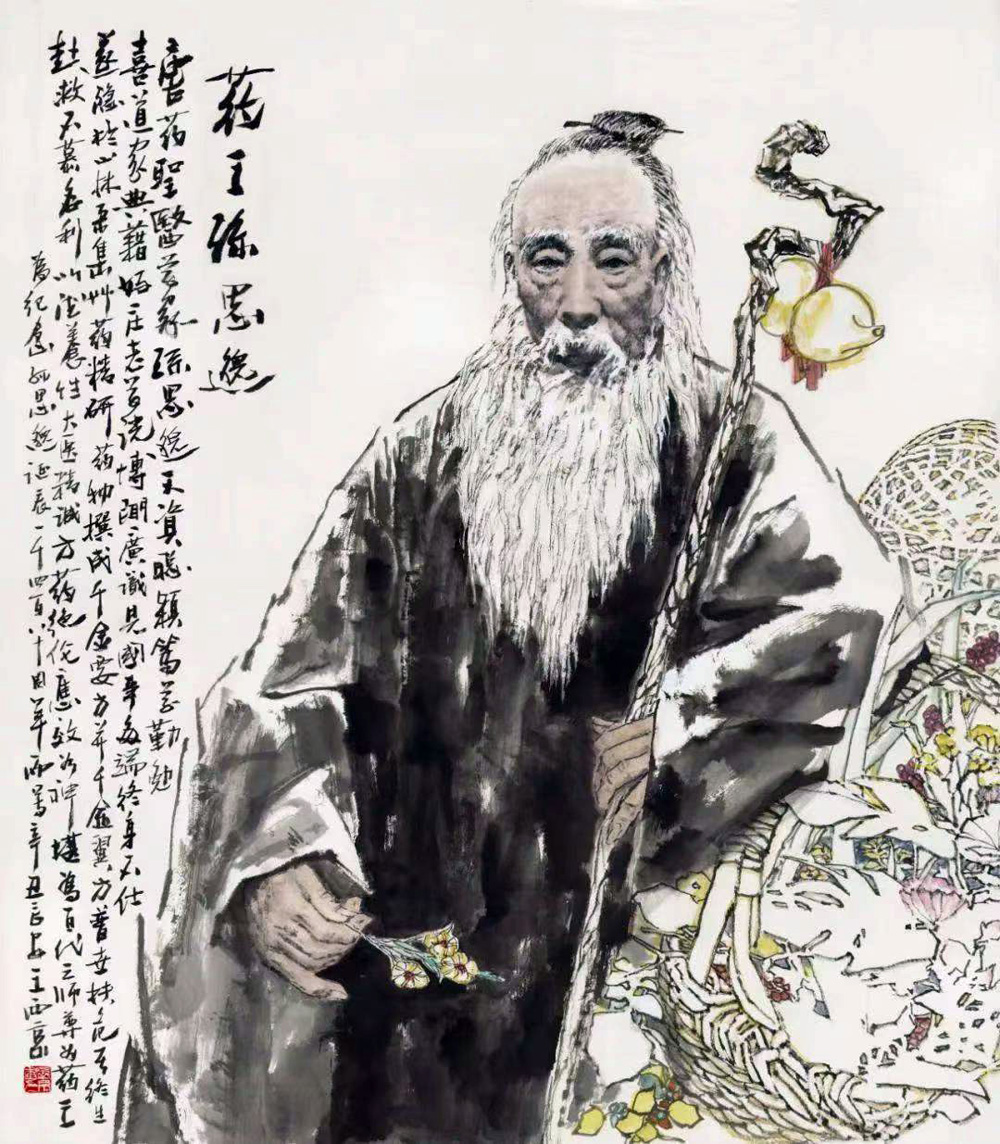 药王孙思邈
唐药圣医学家孙思邈天资聪颖笃学勤勉
喜道家典藉好庄老百说博闻广识见国事多端终身不仕
遂隐于山林采集草药精研药物撰成千金要方并千金翼方普世扶危其终生
赴救不慕名利以德养性大医精诚方药绝伦应效如神堪为百代之师尊为药王
为纪念孙思邈诞辰一千四百八十周年而写辛丑长安王西京